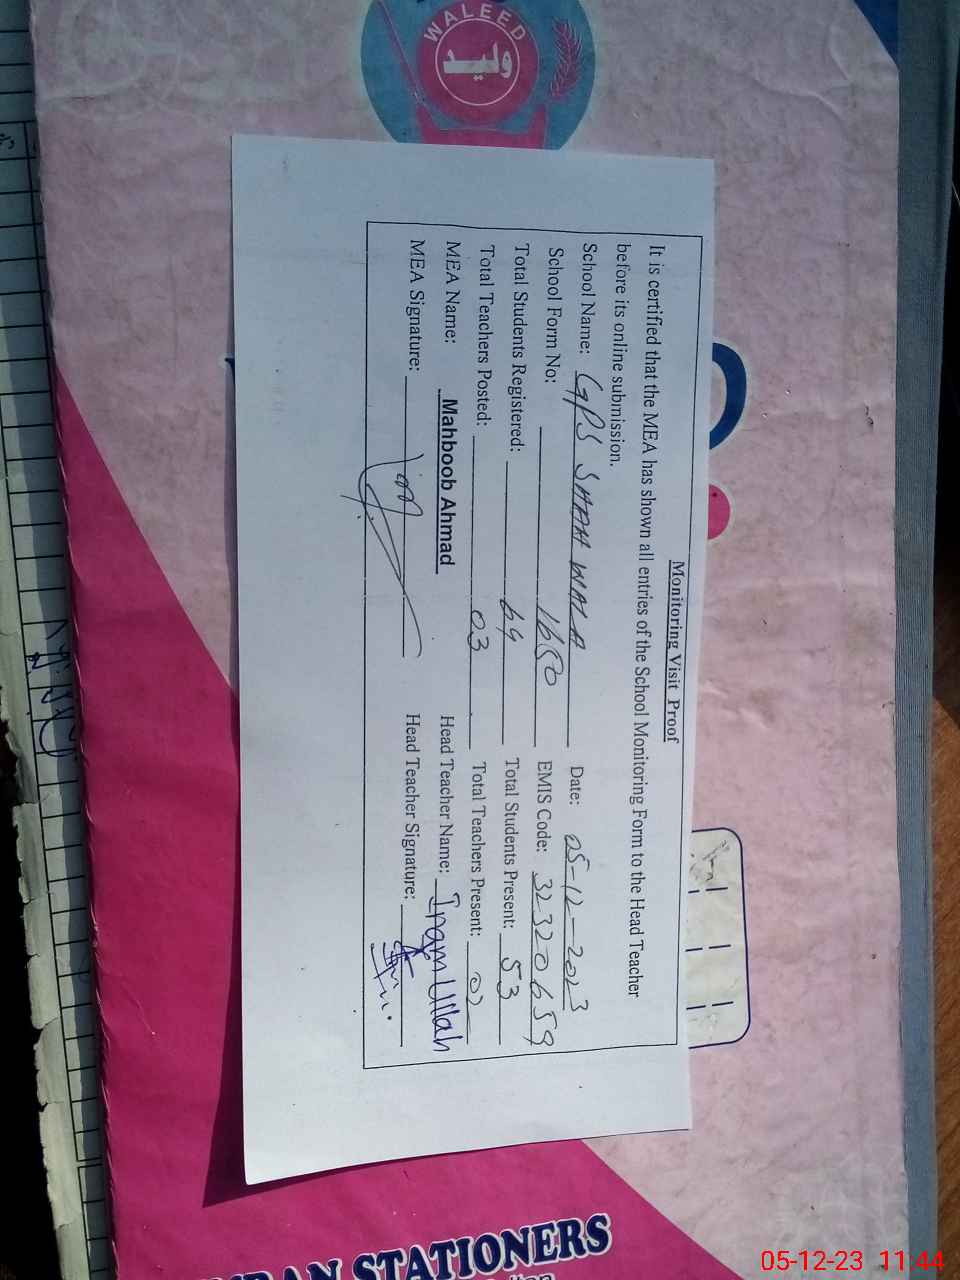 WALEED
Monitoring Visit Proof
It is certified that the MEA has shown all entries of the School Monitoring Form to the Head Teacher
before its online submission.
School Name: GPS SHAH WALA Date: 05-12-2023
School Form No: 1650 EMIS Code: 32320659
Total Students Registered: 64 Total Students Present: 53
Total Teachers Posted: 03 Total Teachers Present: 02
MEA Name: Mahboob Ahmad Head Teacher Name: Inam Ullah
MEA Signature: Head Teacher Signature:
STATIONERS
05-12-23 11:44